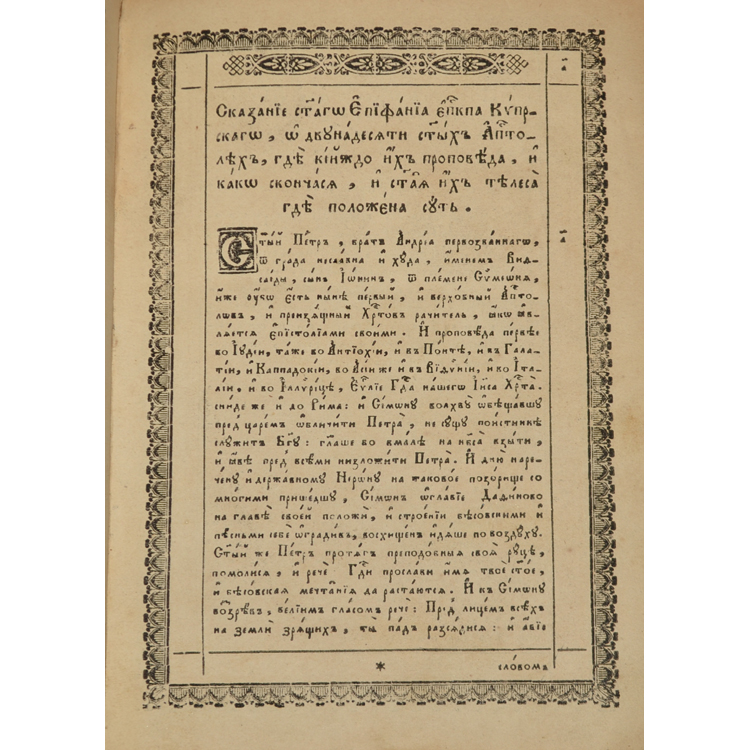 а҃
Сказа́нїе ст҃а́гѡ Є҆пїфа́нїа є҆пкⷭ҇па Кѵ́пр-
скагѡ, ѡ҆ двꙋна́десѧти ст҃ы́хъ А҆пⷭ҇то-
лѣхъ, гдѣ̀ кі́йждо и҆́хъ проповѣ́да, и҆
ка́кѡ сконча́сѧ, и҆ ст҃а́ѧ и҆́хъ тѣлеса̀
гдѣ̀ положе́на сꙋ́ть.
Ст҃ы́й Пе́тръ, бра́тъ А҆ндре́а первозва́ннагѡ,
а҃
ѿ гра́да несла́вна и҆ хꙋ́да, и҆́менемъ Виѳ-
саі́ды, сы́нъ І҆ѡ́нинъ, ѿ пле́мене Сѷмеѡ́нѧ,
и҆́же ᲂу҆́бѡ є҆́сть ны́нѣ пе́рвый, и҆ верхо́вный А҆пⷭ҇то-
лѡвъ, и҆ преизѧ́щный Хрⷭ҇то́въ рачи́тель, ꙗ҆́кѡ ꙗ҆в-
лѧ́етсѧ є҆пїсто́лїами свои́ми. И҆ проповѣ́да пе́рвѣе
во І҆ꙋде́и, та́же во А҆нтїохі́и, и҆ въ По́нтѣ, и҆ въ Гала-
ті́и, и҆ Каппадокі́и, во А҆сі́и же и҆ въ Вїѳѷні́и, и҆ ко І҆та-
лі́и, и҆ во І҆ллѷрі́цѣ, Є҆ѵⷢ҇лїе Гдⷭ҇а на́шегѡ І҆и҃са Хрⷭ҇та̀.
сни́де же и҆ до Ри́ма: и҆ Сі́мѡнꙋ волхвꙋ̀ ѡ҆бѣща́вшꙋ
пред̾ царе́мъ ѡ҆бличи́ти Петра̀, не сꙋ́щꙋ пои́стиннѣ
слꙋжи́тъ Бг҃ꙋ: гл҃аше бо вма́лѣ на нб҃са̀ взы́ти,
и҆ а҆́бїе пред̾ всѣ́ми низложи́ти Петра̀. И҆ дню̀ наре-
че́нꙋ и҆ держа́вномꙋ Неро́нꙋ на таково́е позо́рище со
мно́гими прише́дшꙋ, Сі́мѡнъ ѡ҆гла́вїе Да́фїново
на главѣ̀ свое́й положѝ, и҆ строе́нїи бѣсо́вскими и҆
пѣ́сньми себѐ ѡ҆гради́въ, восхище́нъ и҆дѧ́ше по воз̾дꙋ́хꙋ.
Ст҃ы́й же Пе́тръ протѧ́гъ преподѡ́бныѧ своѧ̑ рꙋ́цѣ,
помоли́сѧ, и҆ речѐ: Гдⷭ҇и просла́ви и҆́мѧ твоѐ ст҃о́е,
и҆ бѣсо́вскаѧ мечта̑нїѧ да раста́ютсѧ. И҆ къ Сі́мѡнꙋ
воззрѣ́въ, ве́лїимъ гла́сомъ речѐ: Пред̾ лице́мъ всѣ́хъ
на землѝ зрѧ́щихъ, ты̀ па́дъ разсѧ́дисѧ: и҆ а҆́бїе
*
сло́вомъ